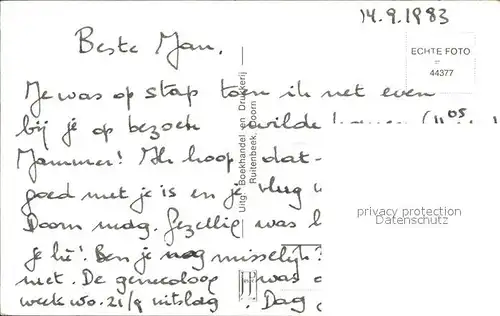 14.9.1983
Beste Jan,
ECHTE FOTO
44377
Je was op stap toen ik net even
bij je op bezoek wilde komen (11.05
Jammer! Ik hoop dat
goed met je is en je vlug
Doorn mag. Gezellig was
je hè! Ben je nog misselijk?
niet. De genecoloog was
week wo. 21/9 uitslag. Dag
Uitg. Boekhandel en Drukkerij
Ruitenbeek, Doorn
privacy protection
Datenschutz